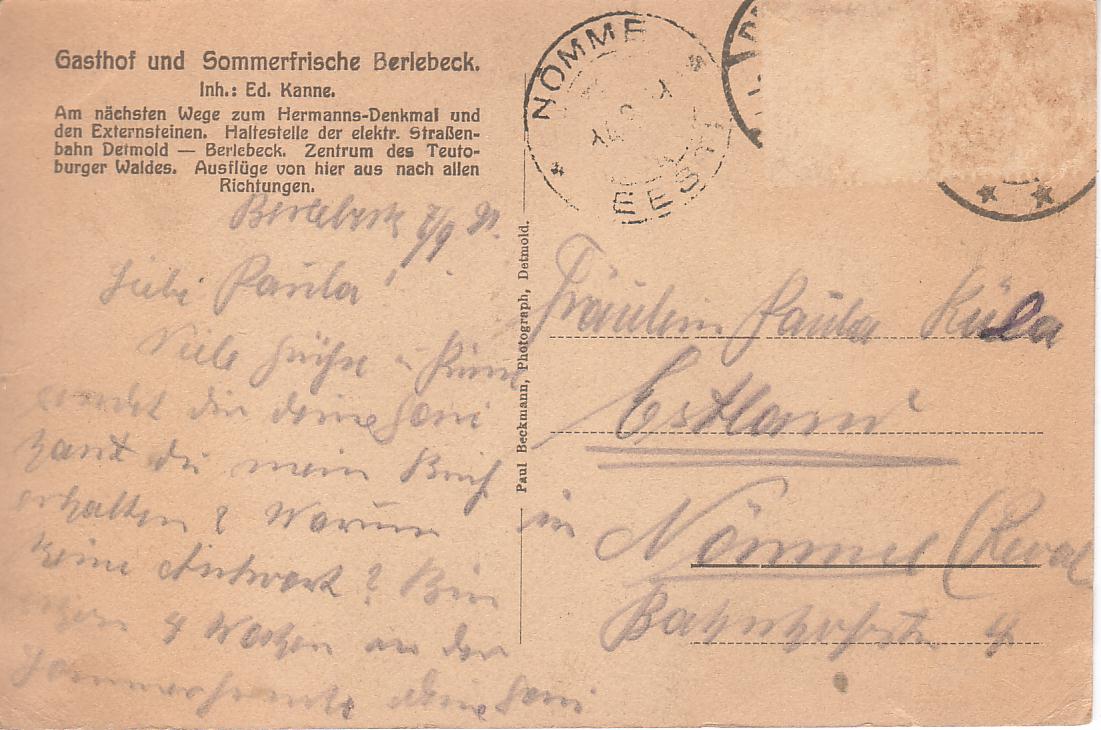 Gasthof und Sommerfrische Berlebeck.
Inh.: Ed. Kanne.
Am nächsten Wege zum Hermanns-Denkmal und
den Externsteinen. Haltestelle der elektr. Straßen-
bahn Detmold — Berlebeck. Zentrum des Teuto-
burger Waldes. Ausflüge von hier aus nach allen
Richtungen.
Berlebeck 7/9
Liebe Paula!
Viele Grüße u
sendet dir deine
du mein Brief
erhalten? Warum
keine Antwort? Bin
4 Wochen an der
Paul Beckmann, Photograph, Detmold.
NÖMME
EESTI
Fräulein Paula Küla
Estland
in Nömme (Reval
Bahnhofstr 4